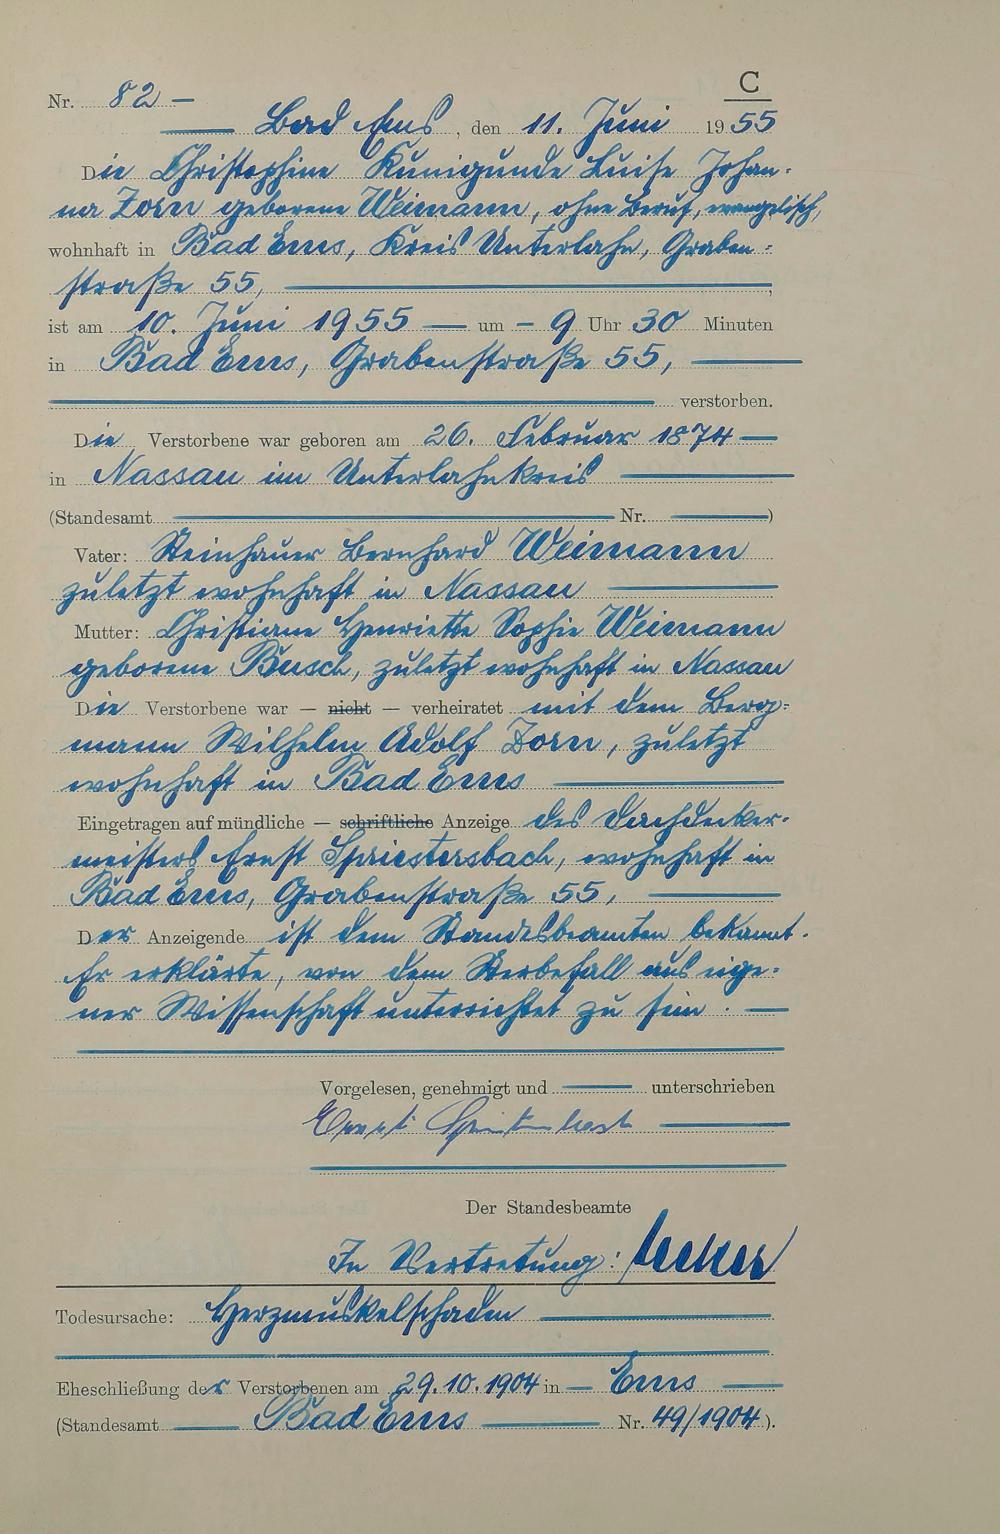 C
Nr. 82 —
Bad Ems, den 11. Juni 1955
Die Christophine Kunigunde Luise Johan-
na Zorn geborene Weimann, ohne Beruf, evangelisch,
wohnhaft in Bad Ems, Kreis Unterlahn, Graben-
straße 55,
ist am 10. Juni 1955 — um — 9 Uhr 30 Minuten
in Bad Ems, Grabenstraße 55,
verstorben.
Die Verstorbene war geboren am 26. Februar 1874 —
in Nassau im Unterlahnkreis
(Standesamt Nr. )
Vater: Steinhauer Bernhard Weimann
zuletzt wohnhaft in Nassau
Mutter: Christiane Henriette Sophie Weimann
geborene Busch, zuletzt wohnhaft in Nassau
Die Verstorbene war — nicht — verheiratet mit dem Berg-
mann Wilhelm Adolf Zorn, zuletzt
wohnhaft in Bad Ems
Eingetragen auf mündliche — schriftliche Anzeige des Dachdecker-
meisters Ernst Spriestersbach, wohnhaft in
Bad Ems, Grabenstraße 55,
Der Anzeigende ist dem Standesbeamten bekannt.
Er erklärte, von dem Sterbefall aus eige-
ner Wissenschaft unterrichtet zu sein. —
Vorgelesen, genehmigt und — unterschrieben
Ernst
Der Standesbeamte
In Vertretung:
Todesursache: Herzmuskelschaden
Eheschließung der Verstorbenen am 29.10.1904 in — Ems
(Standesamt Bad Ems Nr. 49/1904).